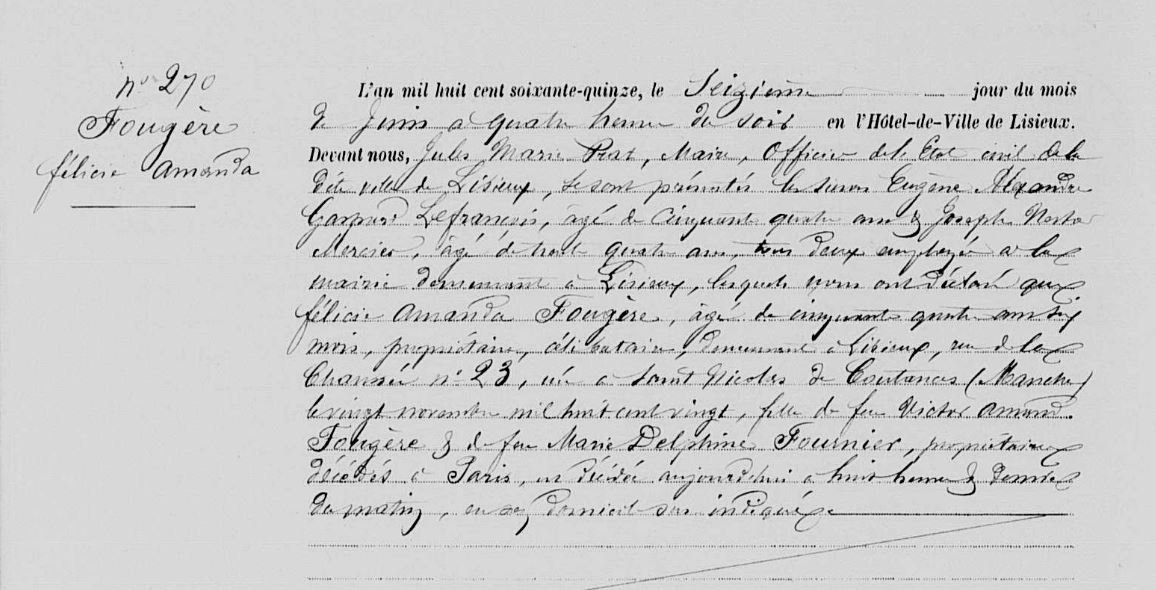 no 270
Fougère
félicie Amanda
L'an mil huit cent soixante-quinze, le Seizième jour du mois
de Juin a quatre heures du soir en l'Hôtel-de-Ville de Lisieux.
Devant nous, Jules Marie Prat, Maire, Officier de l'Etat civil de la
dite ville de Lisieux, se sont présentés les sieurs Eugène Alexandre
Lefrançois, âgé de cinquante quatre ans & Joseph Nestor
Mercier, âgé de trente quatre ans, tous deux employés a la
mairie demeurant à Lisieux, lesquels nous ont déclaré que
félicie Amanda Fougère, âgée de cinquante quatre ans six
mois, propriétaire, célibataire, demeurant à Lisieux, rue de la
Chaussée n° 23, née a Saint Nicolas de Coutances (Manche)
le vingt novembre mil huit cent vingt, fille de feu Victor Amand
Fougère & de feu Marie Delphine Fournier, propriétaires
décédés à Paris, est décédée aujourd'hui a huit heures & demie
du matin, en son domicile sus indiqué.